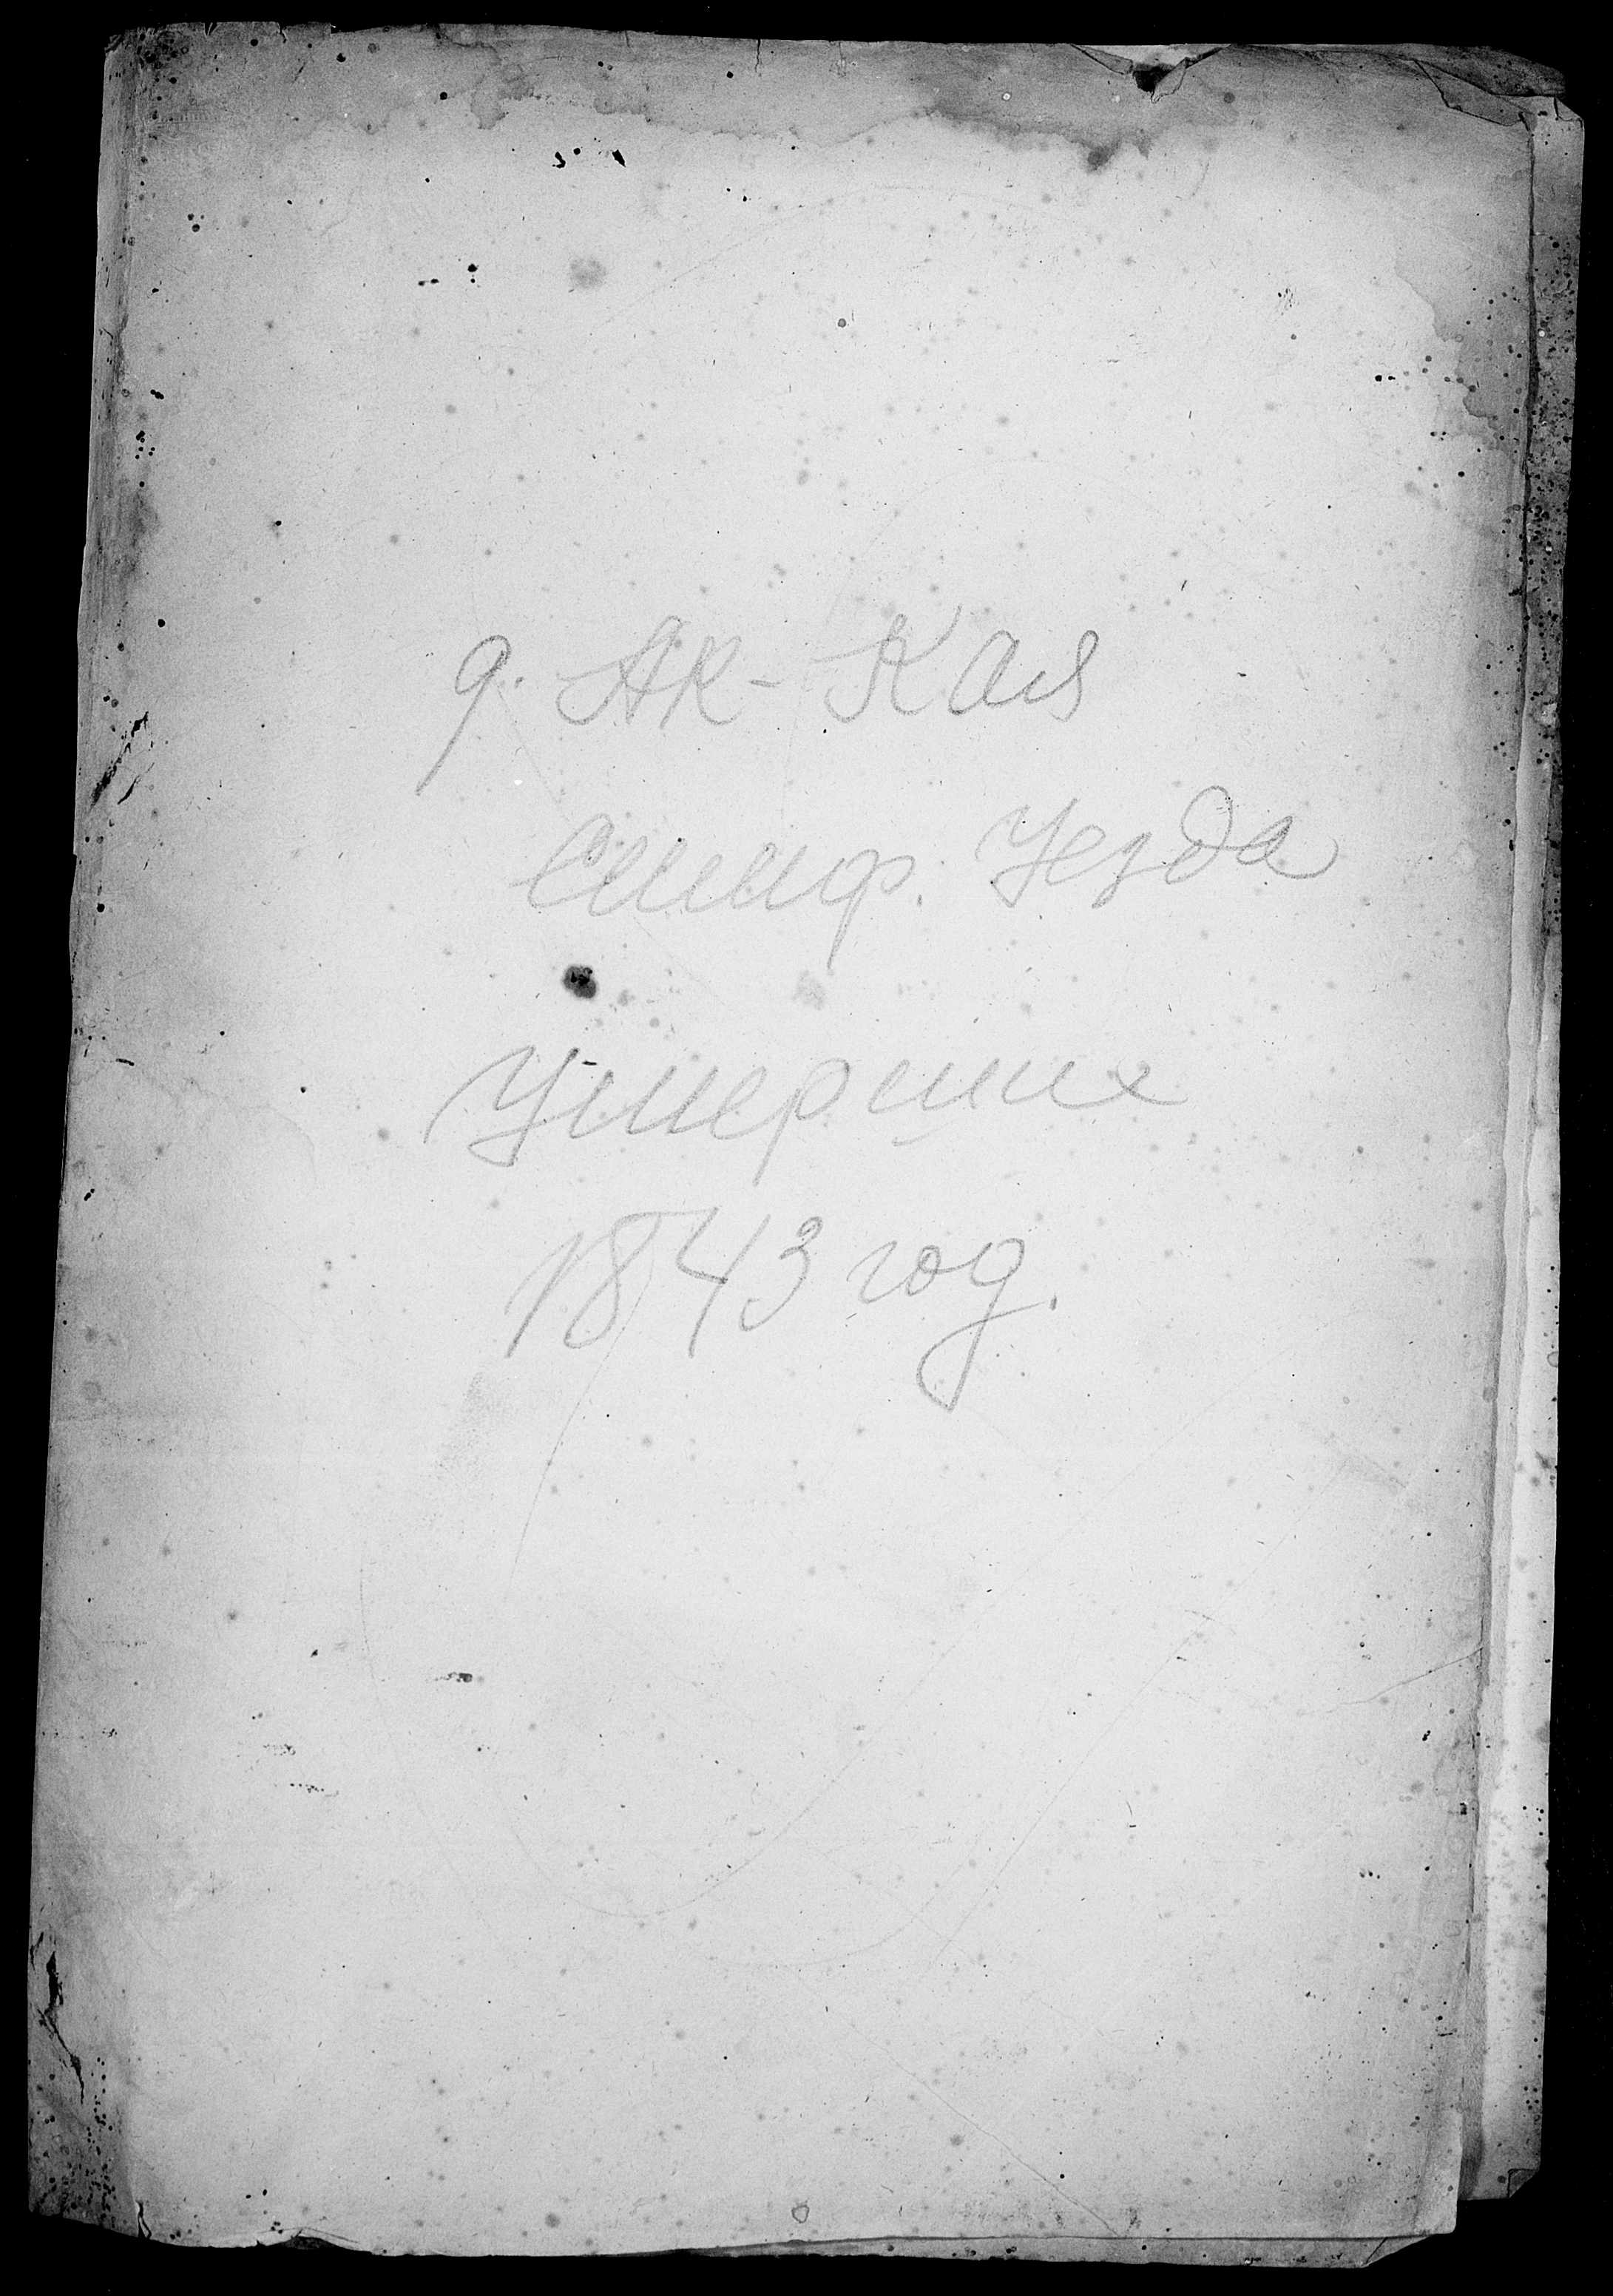 д. Ак-Кая
Симф. Уезда
Умерших
1843 год.